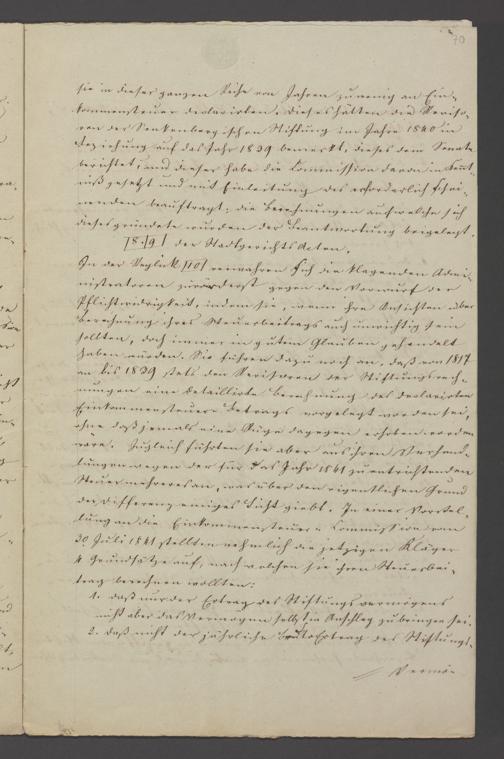 70
sie in dieser ganzen Reihe von Jahren zu wenig an Ein-
kommensteuer declarirten. Dieses hätten die Reviso-
ren der Senkenbergischen Stiftung im Jahre 1840 in
Beziehung auf das Jahr 1839 bemerkt, dieses dem Senate
berichtet, und dieser habe die Commission davon in Kennt-
niß gesetzt und mit Einleitung des erforderlich schei-
nenden beauftragt; die Berechnungen auf welche sich
dieses gründete wurden der Beantwortung beigelegt.
[8.|9] der Stadtgerichts Acten.
In der Replik [10] verwahren sich die klagenden Admi-
nistratoren zuvörderst gegen den Vorwurf der
Pflichtwidrigkeit, indem sie, wenn ihre Ansichten über
Berechnung ihres Steuerbeitrags auch unrichtig sein
sollten, doch immer in gutem Glauben gehandelt
haben würden. Sie führen dazu noch an, daß von 1817
an bis 1839 stets den Revisoren der Stiftungsrech-
nungen eine detaillirte Berechnung des declarirten
Einkommensteuer Betrags vorgelegt worden sei,
ohne daß jemals eine Rüge dagegen erhoben worden
wäre. Zugleich führten sie aber aus ihren Verhand-
lungen wegen der für das Jahr 1841 zu entrichtenden
Steuer mehreres an, was über den eigentlichen Grund
der Differenz einiges Licht giebt. In einer Vorstel-
lung an die Einkommensteuer-Commission vom
30 Juli 1841 stellten nehmlich die jetzigen Kläger
4 Grundsätze auf, nach welchen sie ihren Steuerbei-
trag berechnen wollten:
1. daß nur der Ertrag des Stiftungsvermögens
nicht aber das Vermögen selbst in Anschlag zu bringen sei.
2. daß nicht der jährliche Brutto Ertrag des Stiftungs-
Vermö-